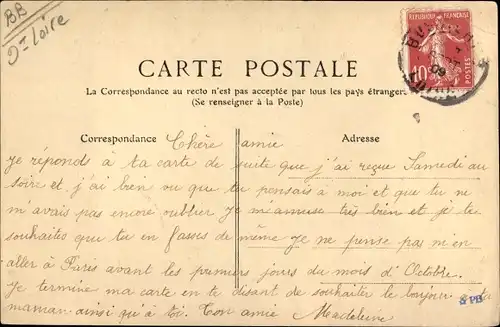 BB
Dt Loire
REPUBLIQUE FRANÇAISE
10
POSTES
09
CARTE POSTALE
La Correspondance au recto n'est pas acceptée par tous les pays étrangers
(Se renseigner à la Poste)
Correspondance
Adresse
Chère amie
je réponds à ta carte de suite que j'ai reçue Samedi au
soire et j'ai bien vu que tu pensais à moi et que tu ne
m avais pas encore oublier je m'amuse très bien et je te
souhaites que tu en fasses de même je ne pense pas m'en
aller à Paris avant les premiers jours du mois d'Octobre.
Je termine ma carte en te disant de souhaiter le bonjour a ta
maman ainsi qu'à toi. Ton amie Madeleine
& PB